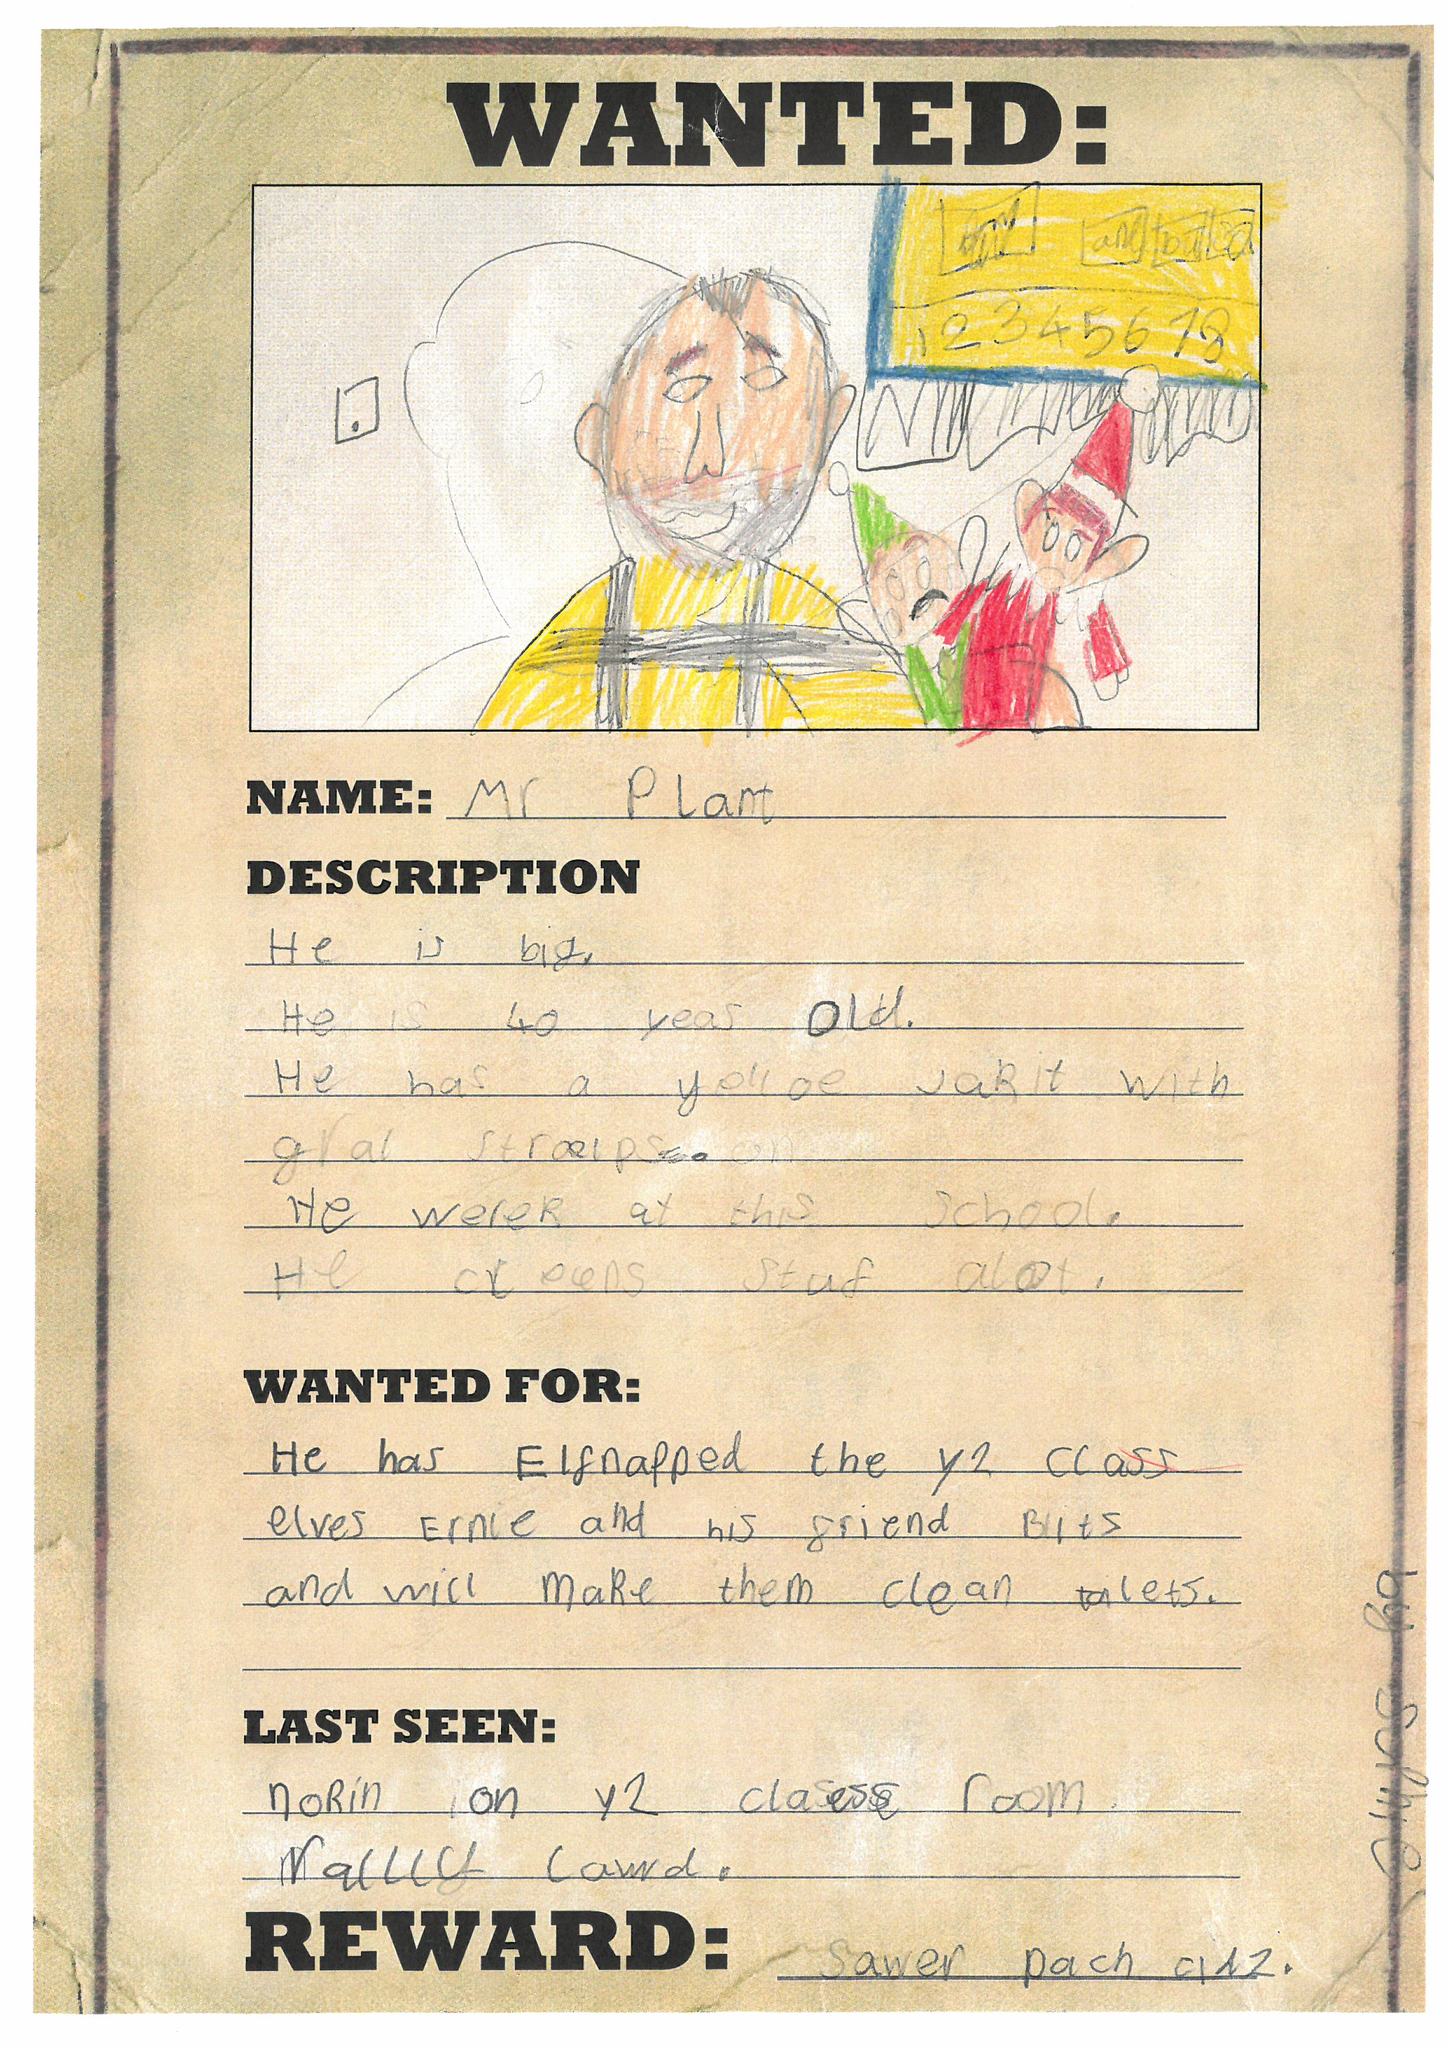 WANTED:
1 2 3 4 5 6 7 8
NAME: Mr Plant
DESCRIPTION
He is big.
He is 40 yeas old.
He has a yelloe jakit with
grai straips.
He werek at this school.
He cleens stuf alot.
WANTED FOR:
He has Elfnapped the y2 class
elves Ernie and his friend Blits
and will make them clean talets.
LAST SEEN:
nokin on y2 classe room
lawd.
REWARD: Sawer pach cids.
by